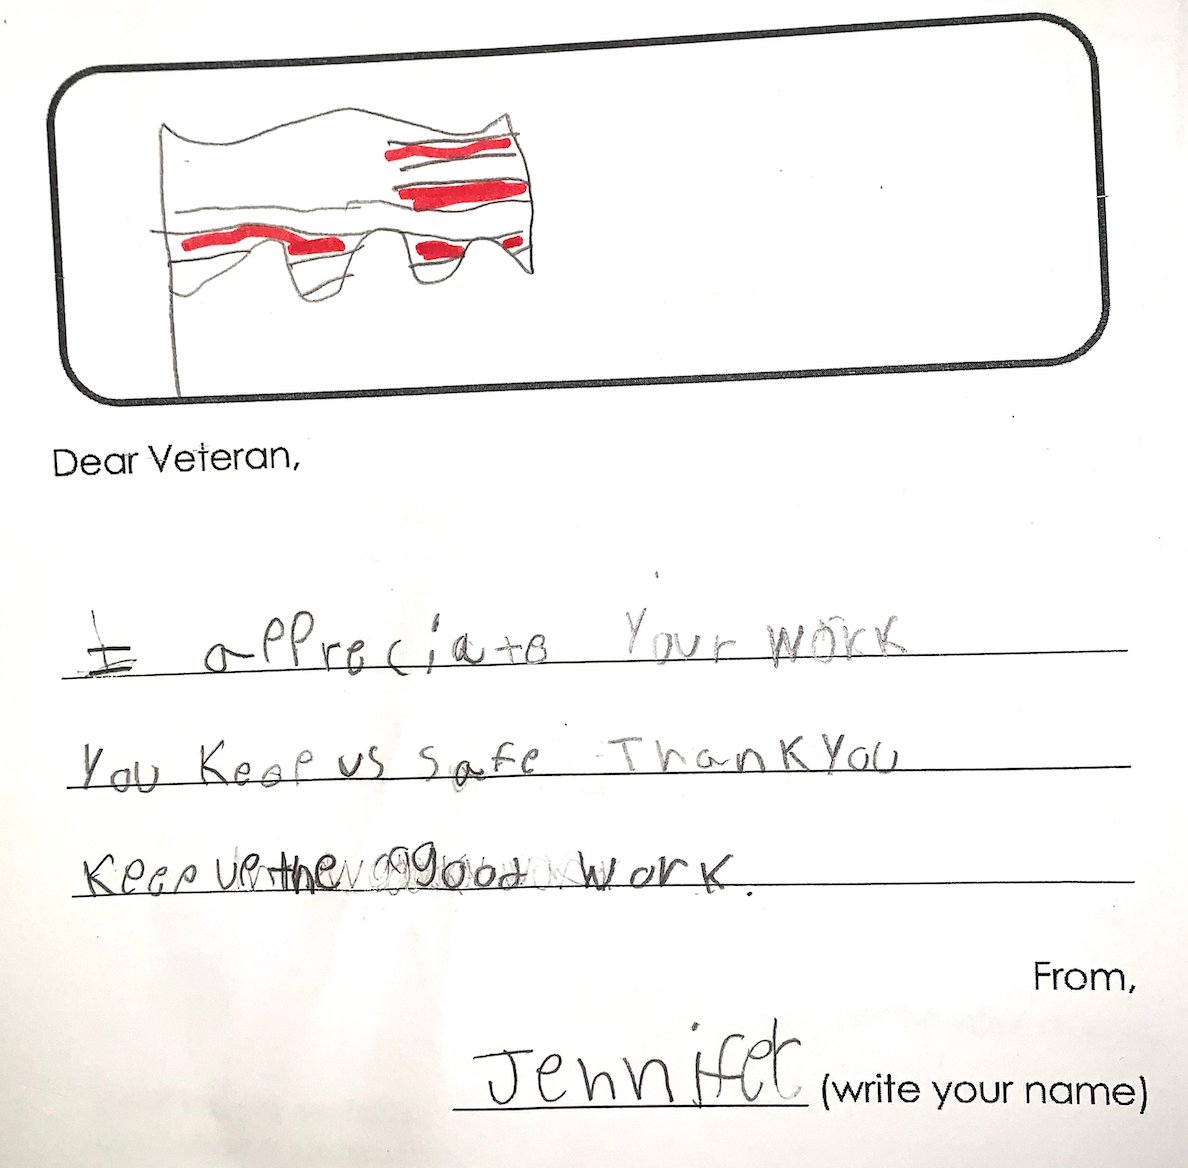 Dear Veteran,
I appreciate Your work
You Keep us safe Thank You
Keep up the good work.
From,
Jennifer (write your name)